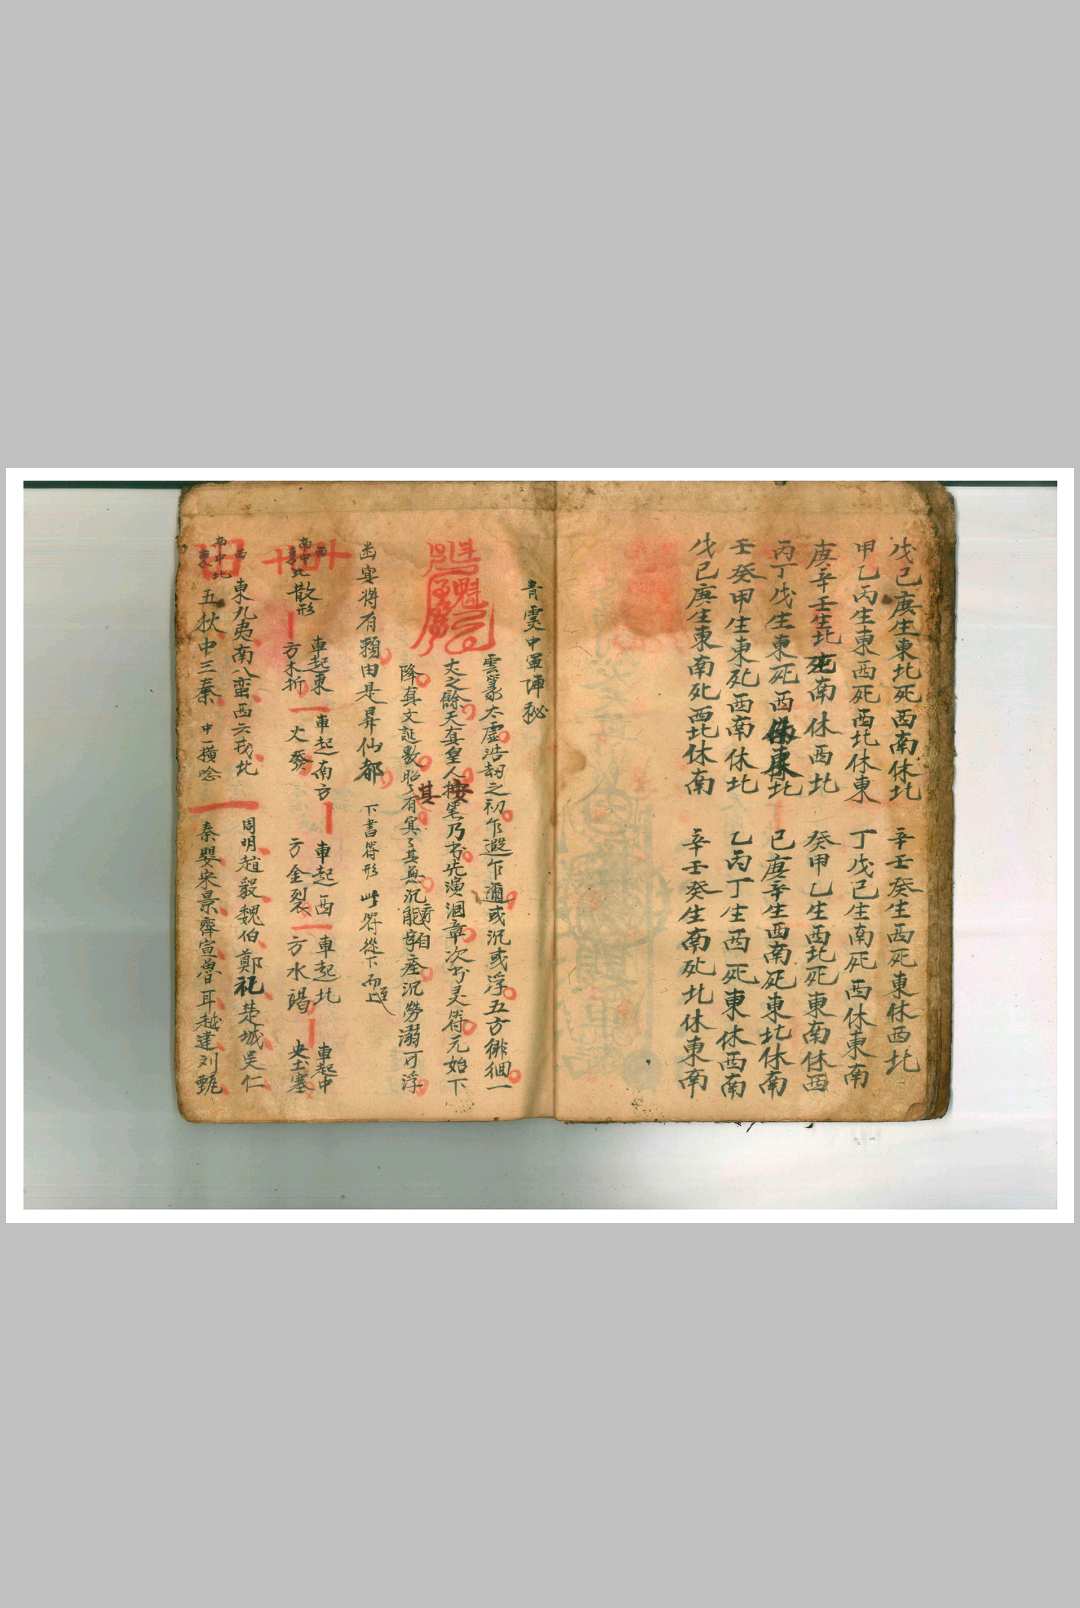 戊己庚生東北死西南休北
辛壬癸生西死東休西北
甲乙丙生東西死西北休東
丁戊己生南死西休東南
庚辛壬生北死南休西北
癸甲乙生西北死東南休西
丙丁戊生東死西休東北
己庚辛生西南死東北休南
壬癸甲生東死西南休北
乙丙丁生西死東休西南
戊己庚生東南死西北休南
辛壬癸生南死北休東南
青雯中軍陣秘
雲篆太虛浩劫之初乍遐乍邇或沉或浮五方徘徊一
丈之餘天真皇人按笔乃書先演洄章次书灵符元始下
降真文誕敷昭々有其冥々其無沉疴自痊沉勞溺可浮
幽冥將有賴由是昇仙都
下書符形 此符從下而起
南中北散形
車起東方木折
車起南方火發
車起西方金裂
車起北方水濁
車起中央土塞
東九夷南八蛮西六戎北
五狄中三秦 中橫唸
周明趙毅魏伯鄭祀楚城吴仁
秦嬰宋景齊宣魯耳越建刘甄